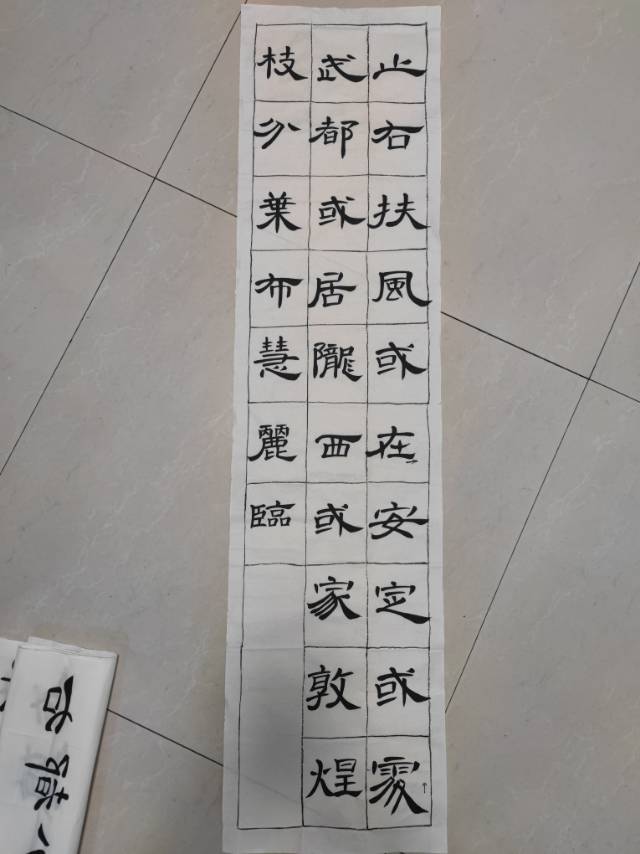 止右扶風或在安定或處
武都或居隴西或家敦煌
枝分葉布慧麗臨